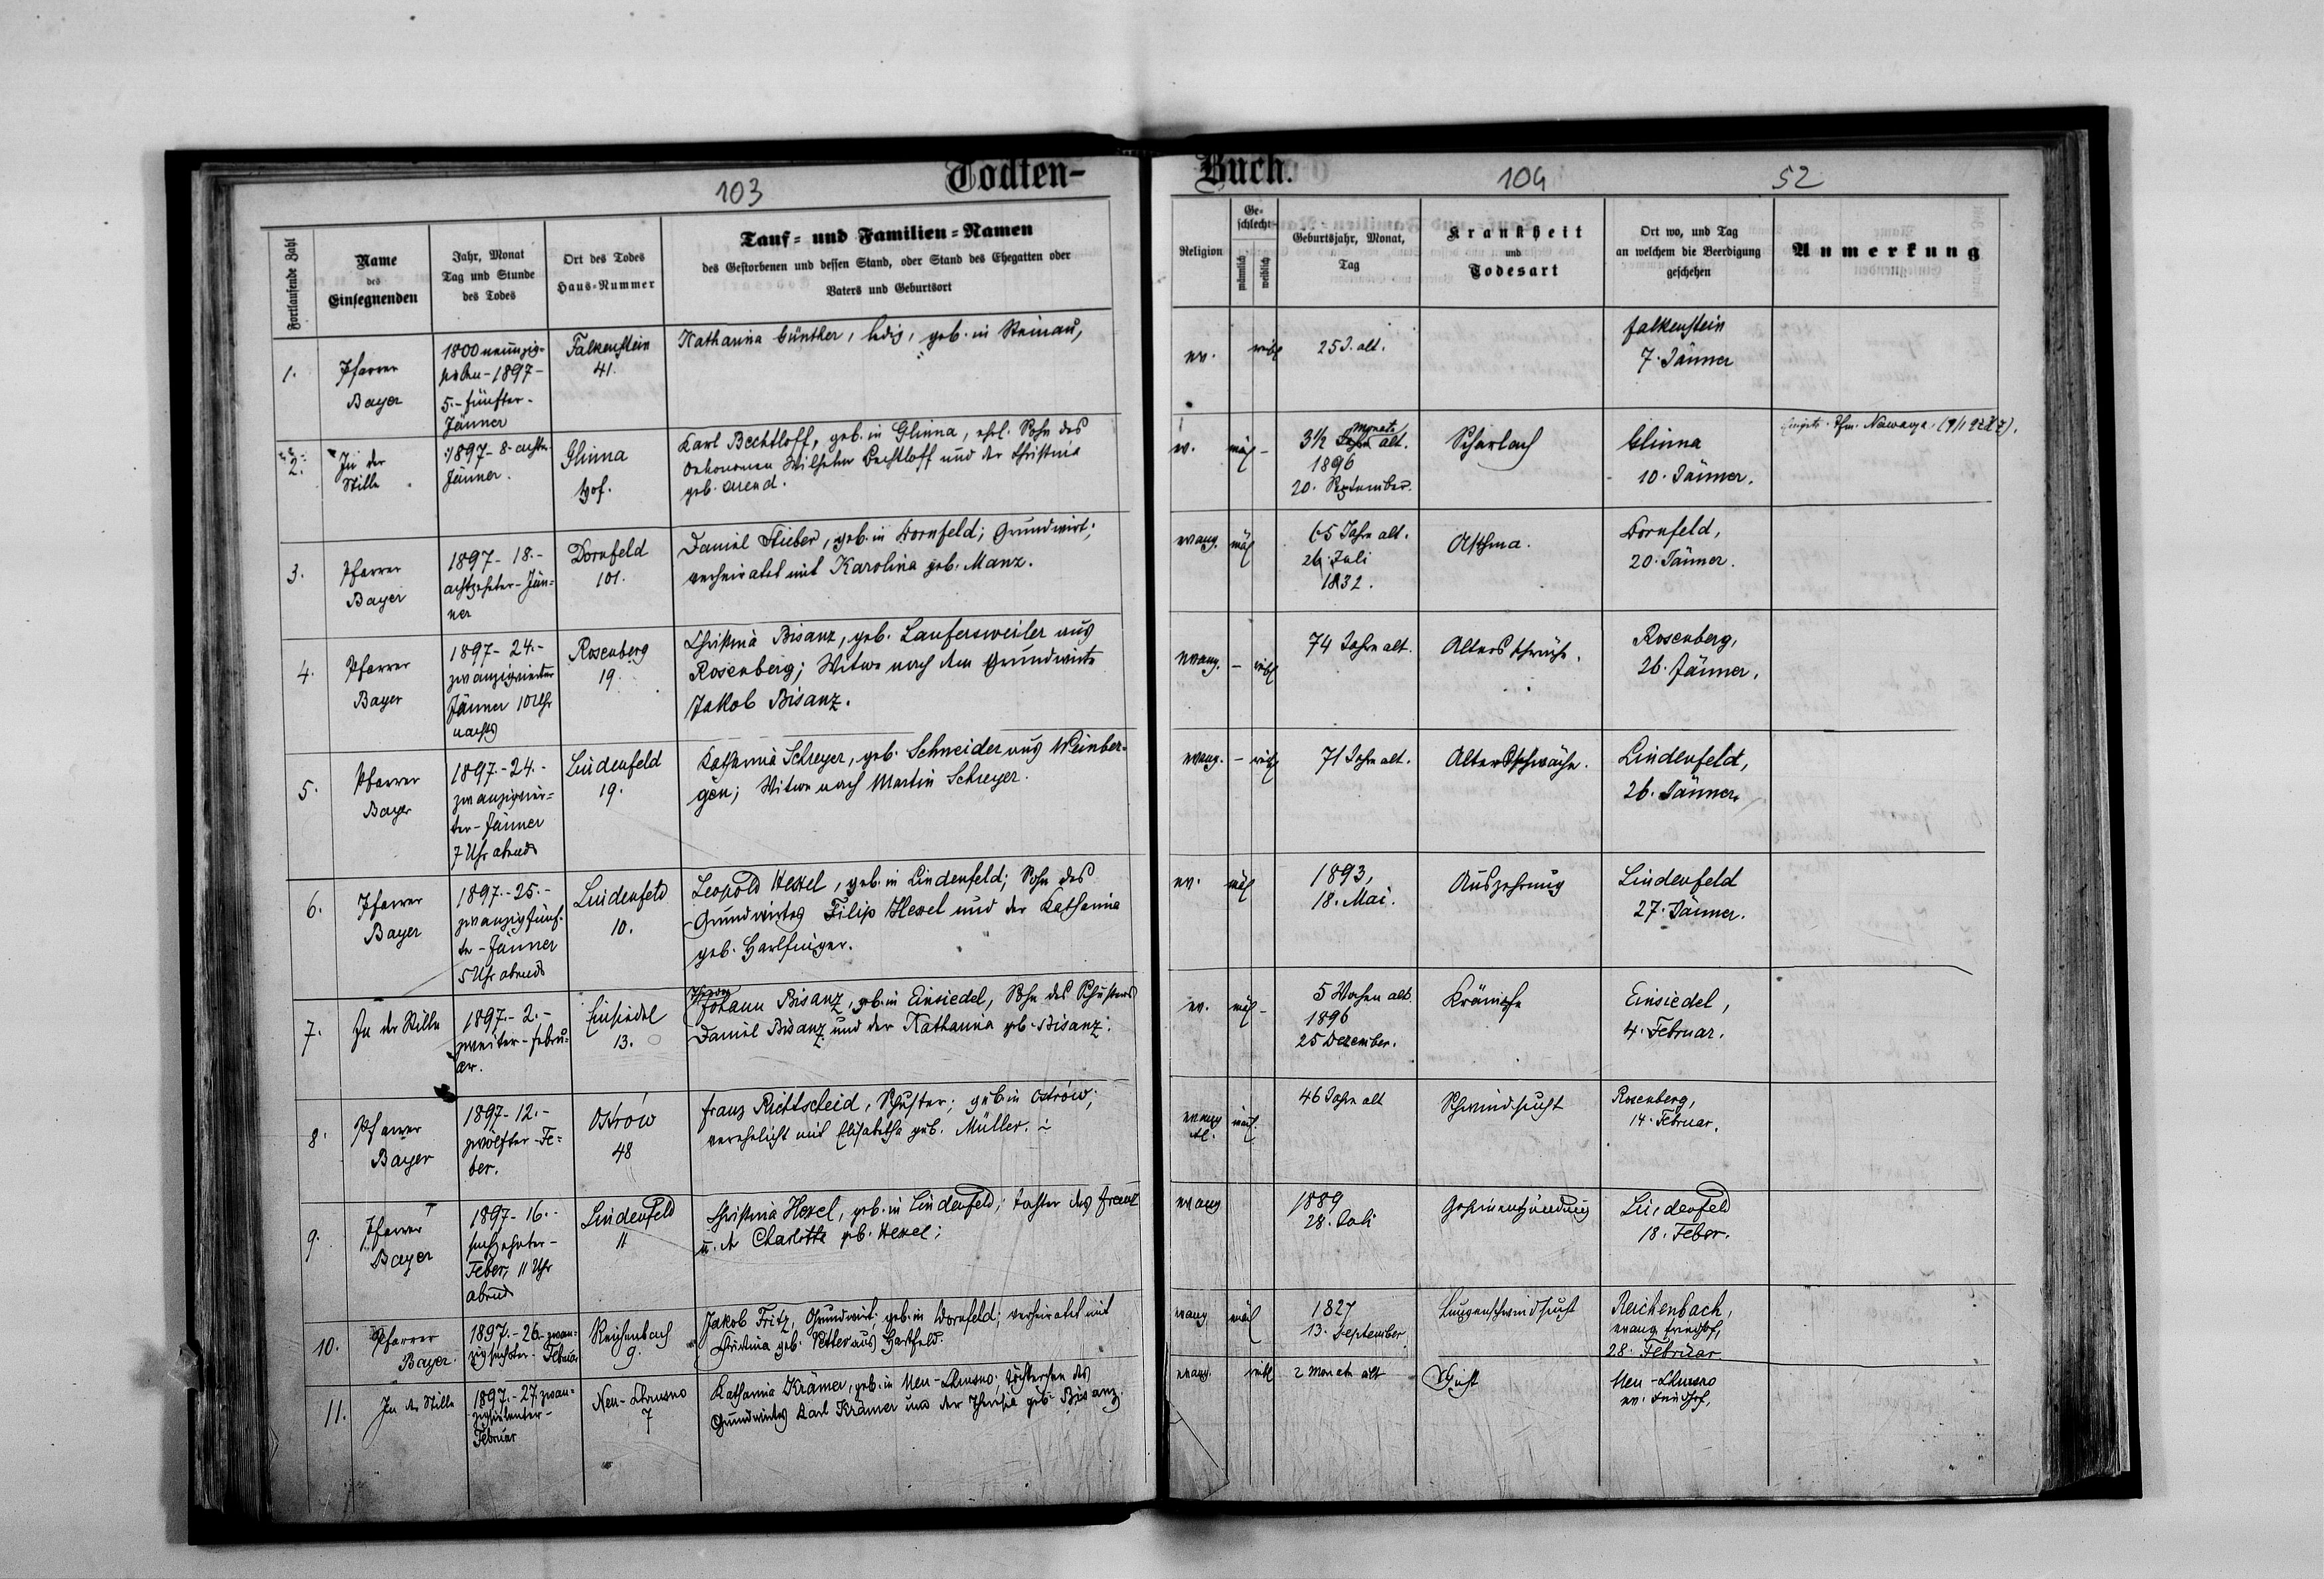 Todten-
Buch.
103
104
52
Fortlaufende Zahl
Name
des
Einsegnenden
Jahr, Monat
Tag und Stunde
des Todes
Ort des Todes
Haus-Nummer
Tauf- und Familien-Namen
des Gestorbenen und dessen Stand, oder Stand des Ehegatten oder
Vaters und Geburtsort
Religion
Ge-
schlecht
männlich
weiblich
Geburtsjahr, Monat,
Tag
Krankheit
und
Todesart
Ort wo, und Tag
an welchem die Beerdigung
geschehen
Anmerkung
1.
Pfarrer
Bayer
1800 neunzig-
sieben - 1897 -
5. - fünfter -
Jänner
Falkenstein
41.
Katharina Günther, ledig, geb. in Steinau,
ev.
weibl
25 J. alt.
Falkenstein
7. Jänner
2.
In der
Stille
1897 - 8 - achter
Jänner.
Glinna
Hof.
Karl Bechtloff, geb. in Glinna, ehel. Sohn des
Oekonomen Wilhelm Bechtloff und der Christina
geb. Arend.
ev.
mäl -
3½ Monate alt.
1896
20. September.
Scharlach
Glinna
10. Jänner.
3.
Pfarrer
Bayer
1897 - 18. -
achtzehnter - Jän-
ner
Dornfeld
101.
Daniel Stieber, geb. in Dornfeld; Grundwirt;
verheiratet mit Karolina geb. Manz.
evang.
mäl
65 Jahre alt.
26. Juli
1832.
Asthma.
Dornfeld,
20. Jänner.
4.
Pfarrer
Bayer
1897 - 24. -
zwanzigvierter
Jänner 10 Uhr
nachts
Rosenberg
19.
Christina Bisanz, geb. Laufersweiler aus
Rosenberg; Witwe nach dem Grundwirte
Jakob Bisanz.
evang.
- weibl
74 Jahre alt.
Altersschwäche.
Rosenberg,
26. Jänner.
5.
Pfarrer
Bayer
1897. - 24. -
zwanzigvier-
ter - Jänner
7 Uhr abends
Lindenfeld
19.
Katharina Schreyer, geb. Schneider aus Weinber-
gen; Witwe nach Martin Schreyer.
evang.
- weibl
71 Jahre alt.
Altersschwäche.
Lindenfeld,
26. Jänner.
6.
Pfarrer
Bayer
1897. - 25. -
zwanzigfünf-
ter - Jänner
5 Uhr abends
Lindenfeld
10.
Leopold Hexel, geb. in Lindenfeld; Sohn des
Grundwirtes Filip Hexel und der Katharina
geb. Harlfinger.
ev.
mäl
1893,
18. Mai.
Auszehrung
Lindenfeld
27. Jänner.
7.
In der Stille
1897. - 2. -
zweiter - Febru-
ar.
Einsiedel
13.
Johann Bisanz, geb. in Einsiedel, Sohn des Schusters
Daniel Bisanz und der Katharina geb. Bisanz.
ev.
mäl -
5 Wochen alt.
1896
25 Dezember.
Krämpfe
Einsiedel,
4. Februar.
8.
Pfarrer
Bayer
1897 - 12. -
zwölfter - Fe-
ber.
Ostrów
48
Franz Rittscheid, Schuster; geb. in Ostrów;
verehelicht mit Elisabetha geb. Müller.
evang
mäl.
46 Jahre alt
Schwindsucht
Rosenberg,
14. Februar.
9.
Pfarrer
Bayer
1897 - 16. -
sechzehnter -
Feber, 11 Uhr
abends
Lindenfeld
11
Christina Hexel, geb. in Lindenfeld; Tochter des Franz
u. der Charlotte geb. Hexel;
evang
1889
28. Juli
Gehirnentzündung
Lindenfeld
18. Feber.
10.
Pfarrer
Bayer.
1897. - 26. - zwan-
zigsechster - Februar
Reichenbach
9.
Jakob Fritz, Grundwirt; geb. in Dornfeld; verheiratet mit
Christina geb. Vetter aus Hartfeld.
evang
mäl
1827
13. September
Lungenschwindsucht
Reichenbach,
evang Friedhof,
28. Februar
11.
In der Stille
1897. - 27. zwan-
zigsiebenter -
Februar
Neu-Chrusno
7
Katharina Krämer, geb. in Neu-Chrusno. Töchterchen des
Grundwirtes Karl Krämer und der geb. Bisanz.
evang.
weibl
2 Monate alt
Neu-Chrusno
ev. Friedhof,